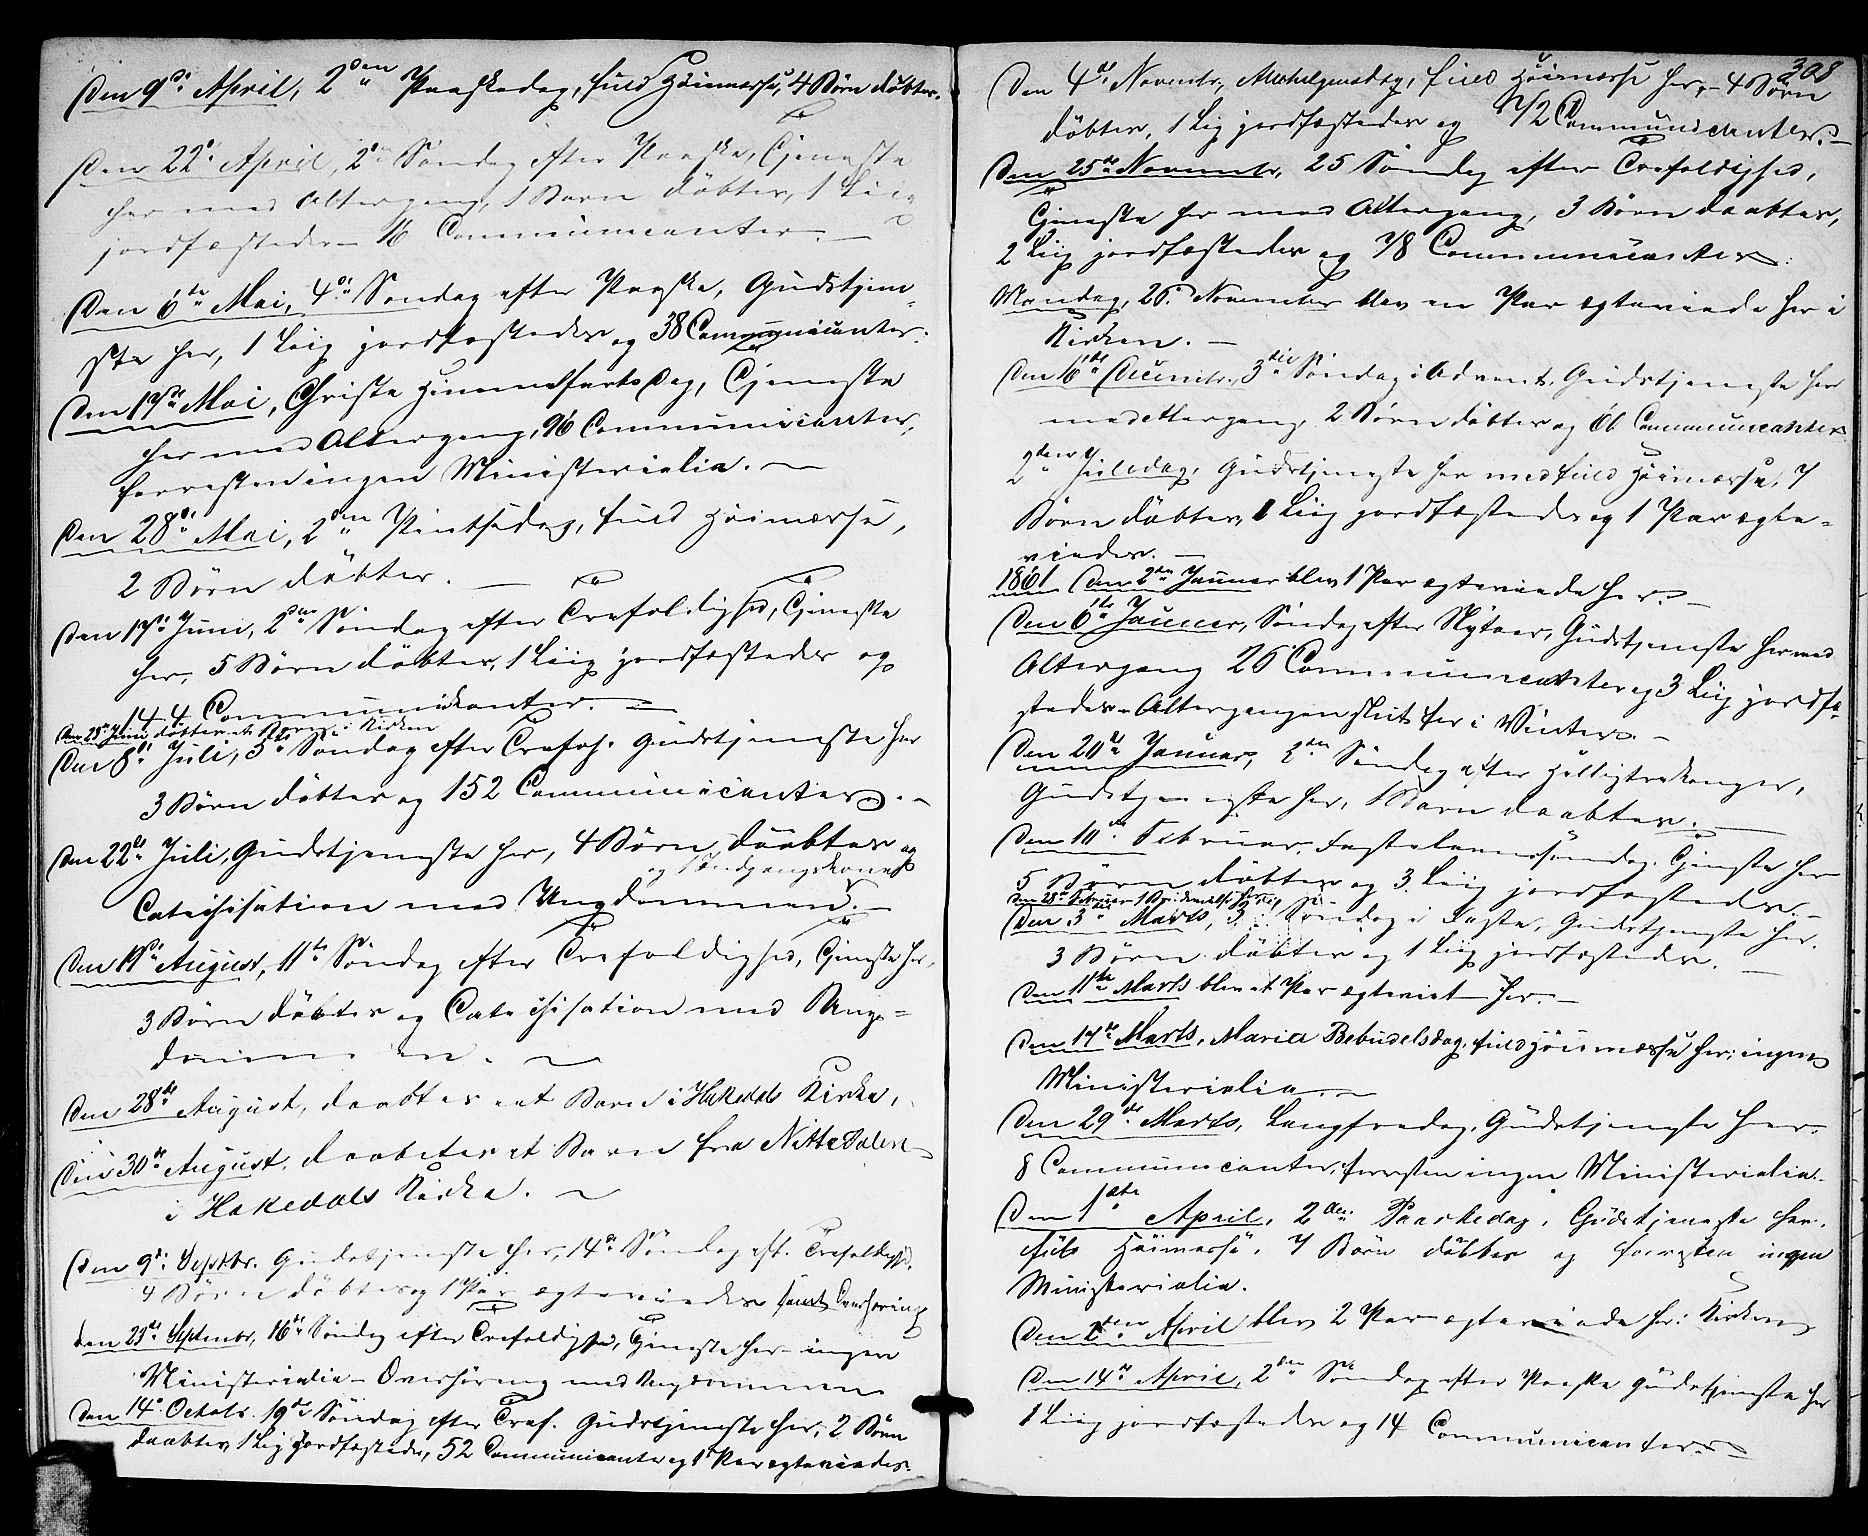 Den 9de April, 2den Paaskedag, fuld Høimesse, 4 Børn døbtes.
Den 22de April, 2den Søndag efter Paaske, Tjeneste
her med Altergang, 1 Barn døbtes, 1 Liig
jordfæstedes 16 Communicanter. –
Den 6te Mai, 4de Søndag efter Paaske, Gudstjene-
ste her, 1 Liig jordfæstedes og 38 Communicanter.
Den 17de Mai, Christi Himmelfarts Dag, Tjeneste
her med Altergang, 96 Communicanter,
forresten ingen Ministerialia. –
Den 28de Mai, 2den Pintsedag, fuld Høimesse,
2 Børn døbtes. –
Den 17de Juni, 2den Søndag efter Trefoldighed, Tjeneste
her, 5 Børn døbtes, 1 Liig jordfæstedes og
144 Communikanter. –
Den 28de Juni døbtes et Barn i Kirken
Den 8de Juli, 5te Søndag efter Trefoh. Gudstjeneste her
3 Børn døbtes og 152 Communicanter. –
Den 22de Juli, Gudstjeneste her, 4 Børn døbtes og
og 1 Indgangskone
Catechisation med Ungdommen. –
Den 19de August, 11te Søndag efter Trefoldighed, Tjeneste her,
3 Børn døbtes og Catechisation med Ung=
dommen. –
Den 28de August, døbtes et Barn i Hakedals Kirke,
Den 30te August, døbtes et Barn fra Nittedalen
i Hakedals Kirke. –
Den 9de Septbr. Gudstjeneste her, 14de Søndag eft. Trefoldighd.
4 Børn døbtes og 1 Par ægteviedes samt Overhøring
den 23de Septembr, 16de Søndag efter Trefoldighd, Tjeneste her – ingen
Ministerialia – Overhøring med Ungdommen
Den 14de Octobr. 19de Søndag efter Tref. Gudstjeneste her, 2 Børn
døbtes, 1 Liig jordfæstedes, 52 Communicanter og 1 Par ægteviedes.
308
Den 4de Novembr, Allehelgensdag, fuld Høimesse her, – 4 Børn
døbtes, 1 Liig jordfæstedes og 72 Communicanter. –
Den 25de Novembr, 25 Søndag efter Trefoldighed,
Tjeneste her med Altergang, 3 Børn døbtes,
2 Liig jordfæstedes og 78 Communicanter.
Mandag, 26. November blev en Par ægteviede her i
Kirken. –
Den 16de Decembr, 3die Søndag i Advent. Gudstjeneste her
med Altergang, 2 Børn døbtes og 66 Communicanter
2den Juledag, Gudstjeneste her med fuld Høimesse, 7
Børn døbtes, 1 Liig jordfæstedes og 1 Par ægte=
viedes. –
1861 Den 2den Januar blev 1 Par ægteviede her. –
Den 6te Januar, Søndag efter Nytaar, Gudstjeneste her med
Altergang 26 Communicanter og 3 Liig jordfæ-
stedes – Altergangen slut for i Vinter. –
Den 20de Januar, 2den Søndag efter Helligtrekonger,
Gudstjeneste her, 1 Barn døbtes. –
Den 10de Februar, Fastelavnssøndag. Tjeneste her
5 Børn døbtes og 3 Liig jordfæstedes. –
Den 3die Marts, 3die Søndag i Faste, Gudstjeneste her.
3 Børn døbtes og 1 Liig jordfæstedes. –
Den 11te Marts blev et Par ægteviet her. –
Den 17de Marts, Maria Bebudelsdag, fuld Høimesse her; ingen
Ministerialia. –
Den 29de Marts, Langfredag, Gudstjeneste her.
8 Communicanter; forresten ingen Ministerialia.
Den 1ste April, 2den Paaskedag, Gudstjeneste her.
fuld Høimesse. 7 Børn døbtes og forresten ingen
Ministerialia.
Den 2den April blev 2 Par ægteviede her i Kirken
Den 14de April, 2den Søndag efter Paaske Gudstjeneste her
1 Liig jordfæstedes og 14 Communicanter. –